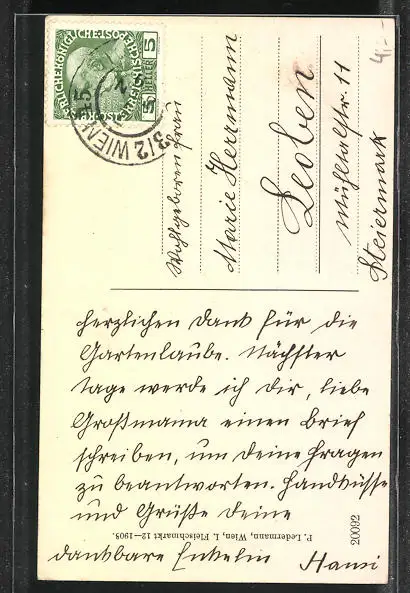 4,-
K.K. ÖSTERREICHISCHE POST
5 HELLER 5
3/2 WIEN
Wohlgeboren Frau
Marie Herrmann
Leoben
Mühltalstr. 11
Steiermark
herzlichen Dank für die
Gartenlaube. Nächster
tage werde ich dir, liebe
Großmama einen Brief
schreiben, um deine Fragen
zu beantworten. Handküsse
und Grüße deine
dankbare Enkelin Hansi
P. Ledermann, Wien, I. Fleischmarkt 12—1908.
20092